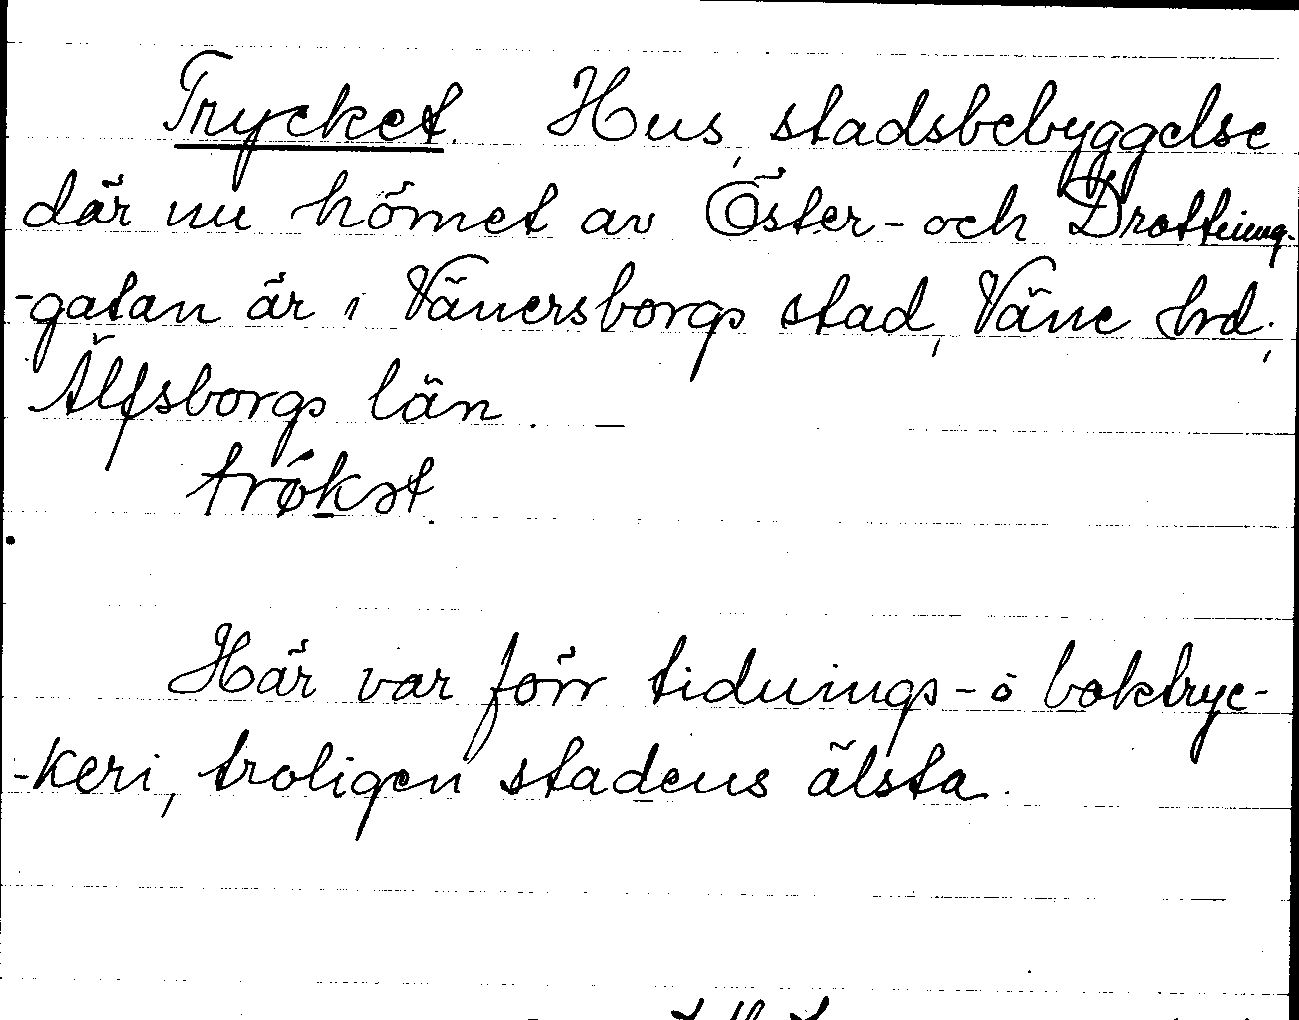 Trycket. Hus, stadsbebyggelse
där nu hörnet av Öster- och Drottning-
-gatan är i Vänersborgs stad, Väne hrd;
Älfsborgs län. —
trøkst.
Här var förr tidnings- o boktryc-
-keri, troligen stadens älsta.